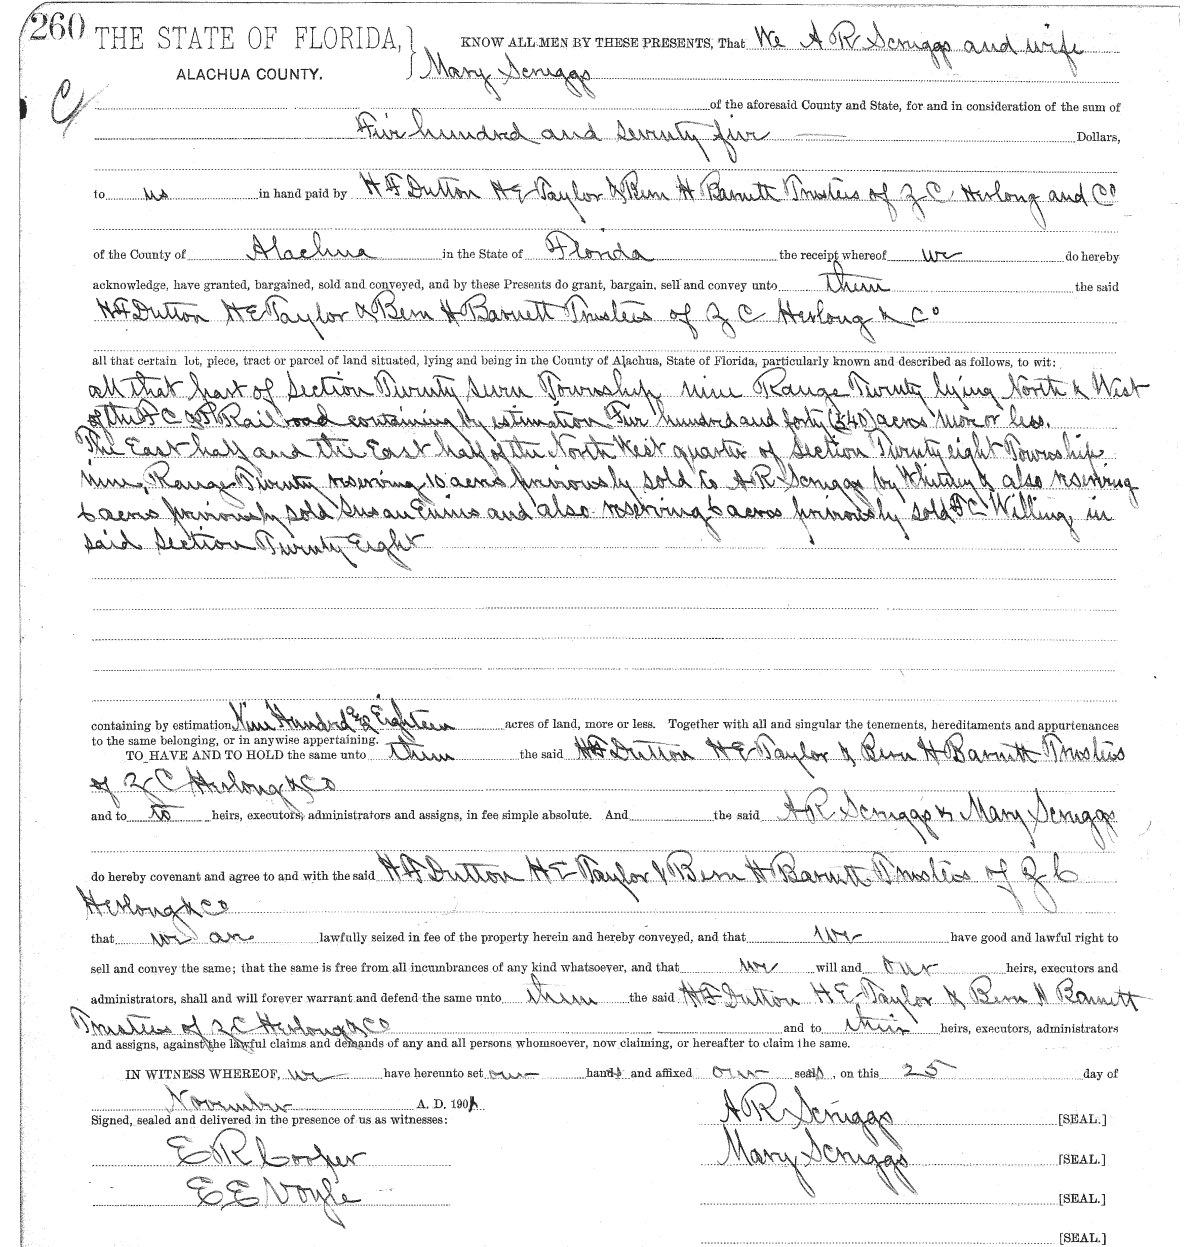 260 THE STATE OF FLORIDA, KNOW ALL MEN BY THESE PRESENTS, That We A R Scruggs and wife
ALACHUA COUNTY. Mary Scruggs
of the aforesaid County and State, for and in consideration of the sum of
Five hundred and seventy five Dollars,
to us in hand paid by H F Dutton H E Taylor & Bern H Barnett Trustees of Z C Herlong and Co
of the County of Alachua in the State of Florida the receipt whereof we do hereby
acknowledge, have granted, bargained, sold and conveyed, and by these Presents do grant, bargain, sell and convey unto them the said
H F Dutton H E Taylor & Bern H Barnett Trustees of Z C Herlong & Co
all that certain lot, piece, tract or parcel of land situated, lying and being in the County of Alachua, State of Florida, particularly known and described as follows, to wit:
all that part of Section Twenty seven Township nine Range Twenty lying North & West
of the F C & P Railroad containing by estimation Five hundred and forty (540) acres more or less.
The East half and the East half of the North West quarter of Section Twenty eight Township
nine, Range Twenty reserving 10 acres previously sold to A R Scruggs by Whitney & also reserving
6 acres previously sold Susan Ennis and also reserving 6 acres previously sold D C Willing in
said Section Twenty Eight
containing by estimation Nine Hundred and Eighteen acres of land, more or less. Together with all and singular the tenements, hereditaments and appurtenances
to the same belonging, or in anywise appertaining.
TO HAVE AND TO HOLD the same unto them the said H F Dutton H E Taylor & Bern H Barnett Trustees
of Z C Herlong & Co
and to to heirs, executors, administrators and assigns, in fee simple absolute. And the said A R Scruggs & Mary Scruggs
do hereby covenant and agree to and with the said H F Dutton H E Taylor & Bern H Barnett Trustees of Z C
Herlong & Co
that we are lawfully seized in fee of the property herein and hereby conveyed, and that we have good and lawful right to
sell and convey the same; that the same is free from all incumbrances of any kind whatsoever, and that we will and our heirs, executors and
administrators, shall and will forever warrant and defend the same unto them the said H F Dutton H E Taylor & Bern H Barnett
Trustees of Z C Herlong & Co and to their heirs, executors, administrators
and assigns, against the lawful claims and demands of any and all persons whomsoever, now claiming, or hereafter to claim the same.
IN WITNESS WHEREOF, we have hereunto set our hands and affixed our seals, on this 25 day of
November A. D. 1901
Signed, sealed and delivered in the presence of us as witnesses: A R Scruggs [SEAL.]
E R Cooper Mary Scruggs [SEAL.]
E E Voyle [SEAL.]
[SEAL.]